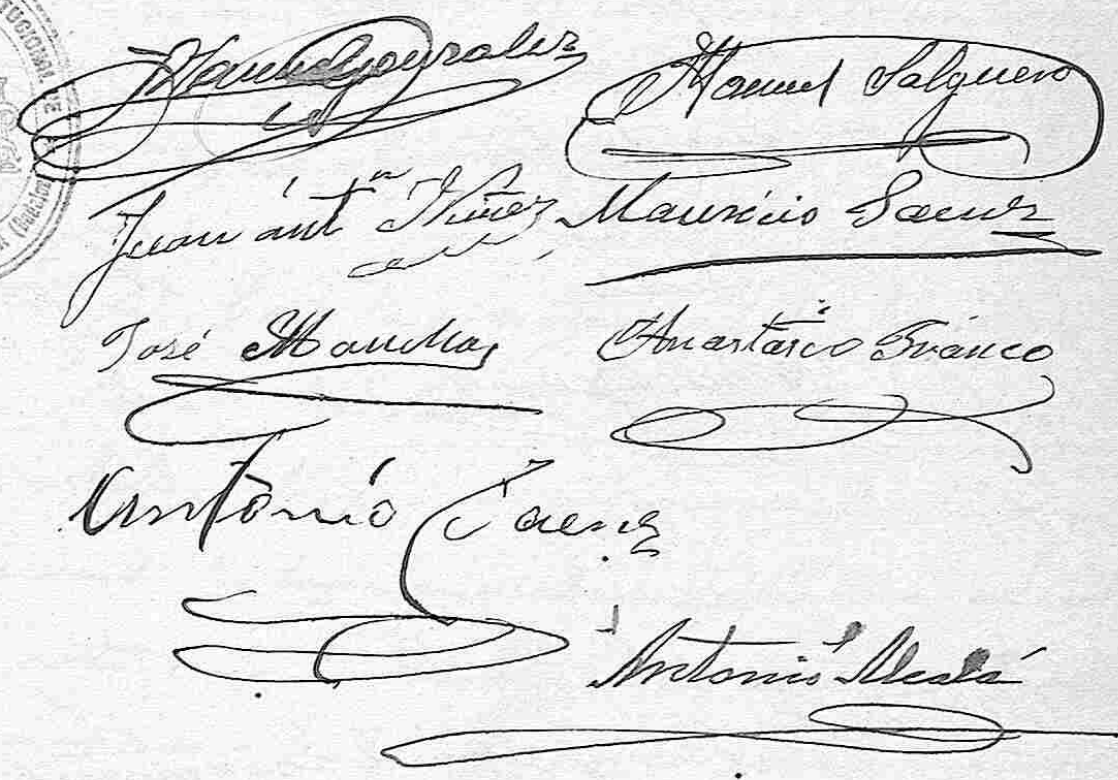 Manuel Gonzalez Manuel Salguero
Juan antᵒⁿ Nuñez Mauricio Saenz
José Anastasio Franco
Antonio Saenz
Antonio Alcalá